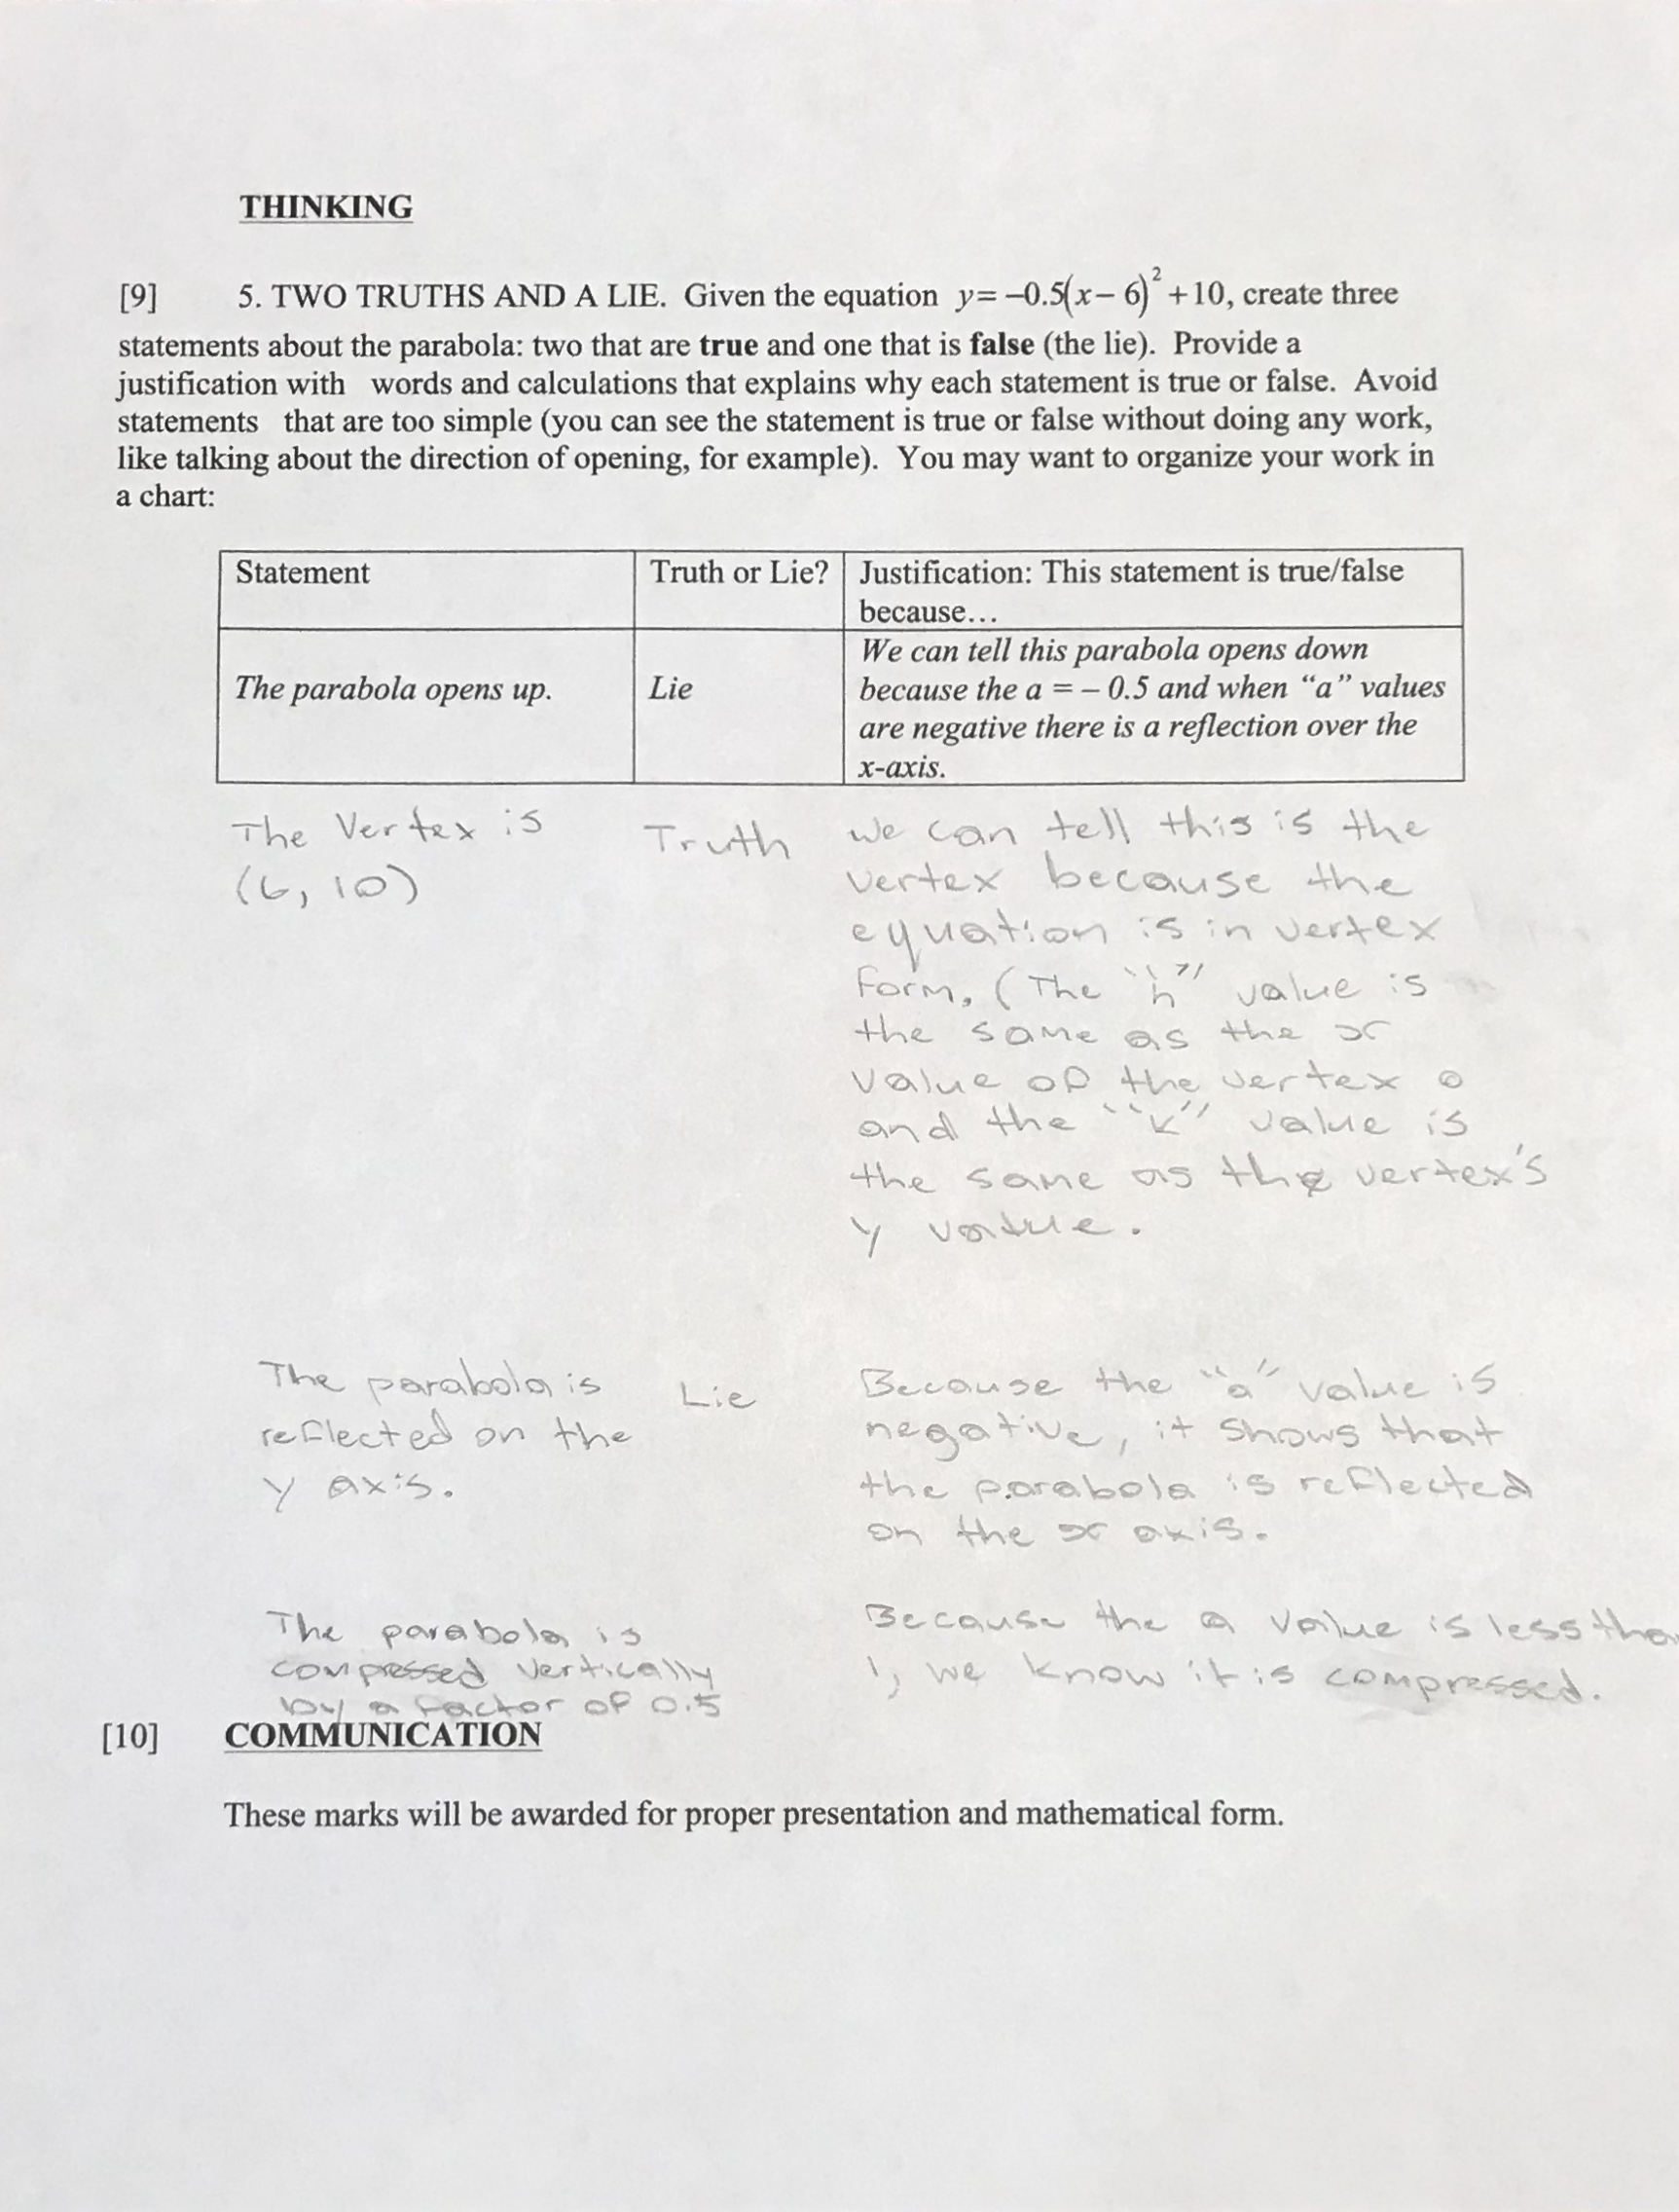 THINKING
[9] 5. TWO TRUTHS AND A LIE. Given the equation y= –0.5(x– 6)² +10, create three
statements about the parabola: two that are true and one that is false (the lie). Provide a
justification with words and calculations that explains why each statement is true or false. Avoid
statements that are too simple (you can see the statement is true or false without doing any work,
like talking about the direction of opening, for example). You may want to organize your work in
a chart:
Statement
Truth or Lie?
Justification: This statement is true/false
because…
The parabola opens up.
Lie
We can tell this parabola opens down
because the a = – 0.5 and when “a” values
are negative there is a reflection over the
x-axis.
The Vertex is
(6, 10)
Truth
we can tell this is the
vertex because the
equation is in vertex
form. (The "h" value is
the same as the x
value of the vertex
and the "k" value is
the same as the vertex's
y value.
The parabola is
reflected on the
y axis.
Lie
Because the "a" value is
negative, it shows that
the parabola is reflected
on the x axis.
The parabola is
compressed vertically
by a factor of 0.5
Because the a value is less tha
1, we know it is compressed.
[10] COMMUNICATION
These marks will be awarded for proper presentation and mathematical form.